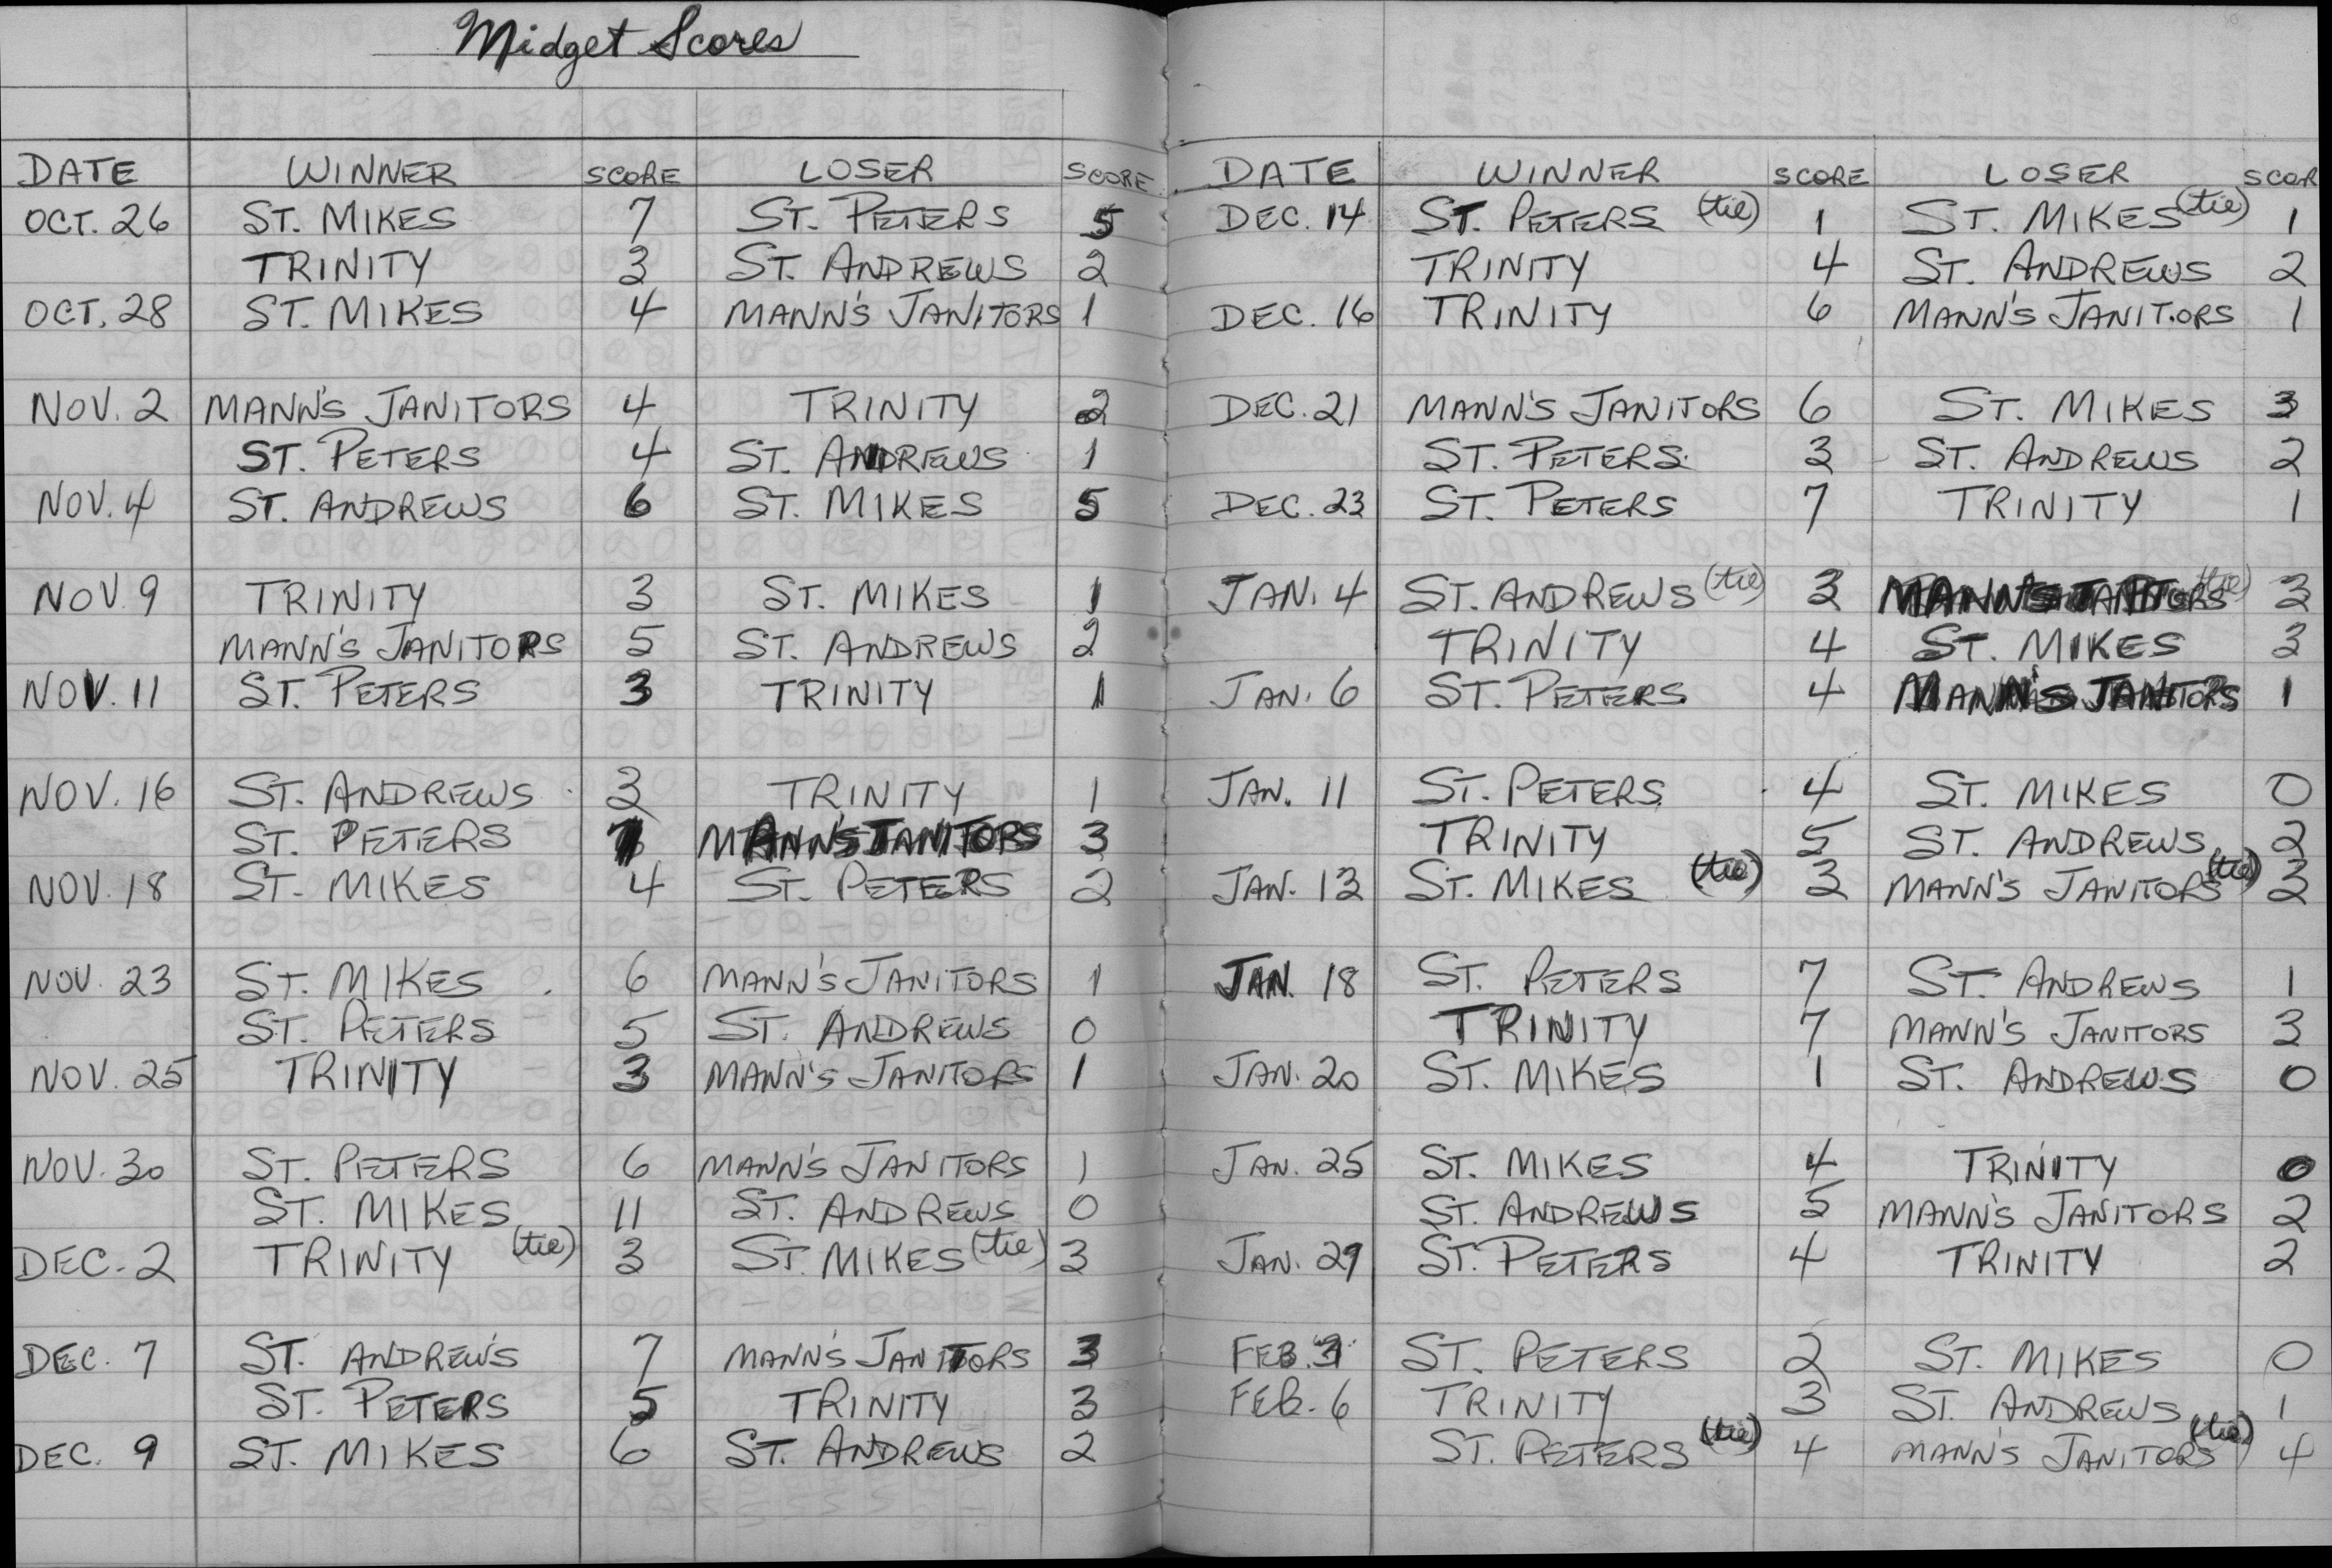 Midget Scores
DATE WINNER SCORE LOSER SCORE
OCT. 26 ST. MIKES 7 ST. PETERS 5
TRINITY 3 ST. ANDREWS 2
OCT. 28 ST. MIKES 4 MANN'S JANITORS 1
NOV. 2 MANN'S JANITORS 4 TRINITY 2
ST. PETERS 4 ST. ANDREWS 1
NOV. 4 ST. ANDREWS 6 ST. MIKES 5
NOV. 9 TRINITY 3 ST. MIKES 1
MANN'S JANITORS 5 ST. ANDREWS 2
NOV. 11 ST. PETERS 3 TRINITY 1
NOV. 16 ST. ANDREWS 3 TRINITY 1
ST. PETERS MANN'S JANITORS 3
NOV. 18 ST. MIKES 4 ST. PETERS 2
NOV. 23 ST. MIKES 6 MANN'S JANITORS 1
ST. PETERS 5 ST. ANDREWS 0
NOV. 25 TRINITY 3 MANN'S JANITORS 1
NOV. 30 ST. PETERS 6 MANN'S JANITORS 1
ST. MIKES 11 ST. ANDREWS 0
DEC. 2 TRINITY (tie) 3 ST. MIKES (tie) 3
DEC. 7 ST. ANDREW'S 7 MANN'S JANITORS 3
ST. PETERS 5 TRINITY 3
DEC. 9 ST. MIKES 6 ST. ANDREWS 2
DATE WINNER SCORE LOSER SCOR
DEC. 14 ST. PETERS (tie) 1 ST. MIKES (tie) 1
TRINITY 4 ST. ANDREWS 2
DEC. 16 TRINITY 6 MANN'S JANITORS 1
DEC. 21 MANN'S JANITORS 6 ST. MIKES 3
ST. PETERS 3 ST. ANDREWS 2
DEC. 23 ST. PETERS 7 TRINITY 1
JAN. 4 ST. ANDREWS (tie) 3 MANN'S JANITORS (tie) 3
TRINITY 4 ST. MIKES 3
JAN. 6 ST. PETERS 4 MANN'S JANITORS 1
JAN. 11 ST. PETERS 4 ST. MIKES 0
TRINITY 5 ST. ANDREWS 2
JAN. 13 ST. MIKES (tie) 3 MANN'S JANITORS (tie) 3
JAN. 18 ST. PETERS 7 ST. ANDREWS 1
TRINITY 7 MANN'S JANITORS 3
JAN. 20 ST. MIKES 1 ST. ANDREWS 0
JAN. 25 ST. MIKES 4 TRINITY 0
ST. ANDREWS 5 MANN'S JANITORS 2
JAN. 29 ST. PETERS 4 TRINITY 2
FEB. ST. PETERS 2 ST. MIKES 0
FEB. 6 TRINITY 3 ST. ANDREWS 1
ST. PETERS (tie) 4 MANN'S JANITORS (tie) 4